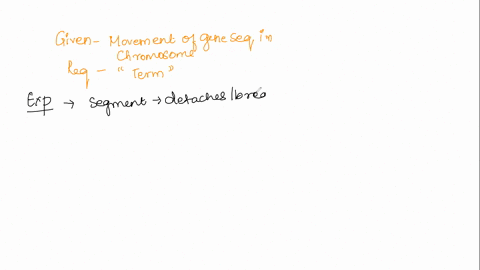 Given - Movement of gene seq in
Chromosome
Req - "Term"
Exp → segment → detaches/brea